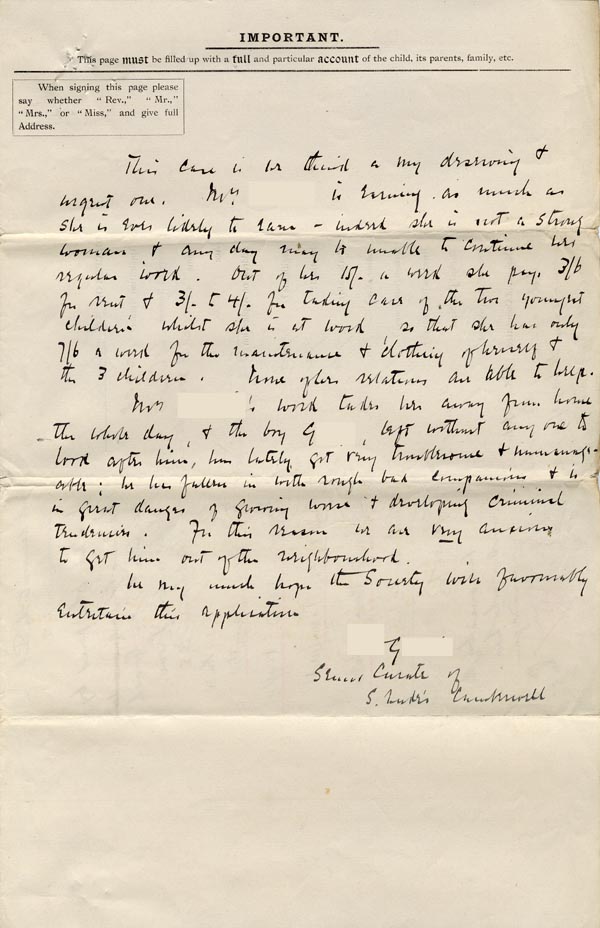 IMPORTANT.
This page must be filled up with a full and particular account of the child, its parents, family, etc.
When signing this page please
say whether "Rev.," "Mr.,"
"Mrs.," or "Miss," and give full
Address.
This case is we think a very deserving &
urgent one. Mrs is earning as much as
she is ever likely to earn - indeed she is not a strong
woman & any day may be unable to continue her
regular work. Out of her 15/- a week she pays 3/6
for rent & 3/- to 4/- for taking care of the two youngest
children whilst she is at work, so that she has only
7/6 a week for the maintenance & clothing of herself &
the 3 children. None of her relations are able to help.
Mrs 's work takes her away from home
the whole day, & the boy G , left without any one to
look after him, has lately got very troublesome & unmanage-
able; he has fallen in with rough bad companions & is
in great danger of growing worse & developing criminal
tendencies. For this reason we are very anxious
to get him out of the neighbourhood.
We very much hope the Society will favourably
entertain this application
G
Senior Curate of
S. Luke's Camberwell